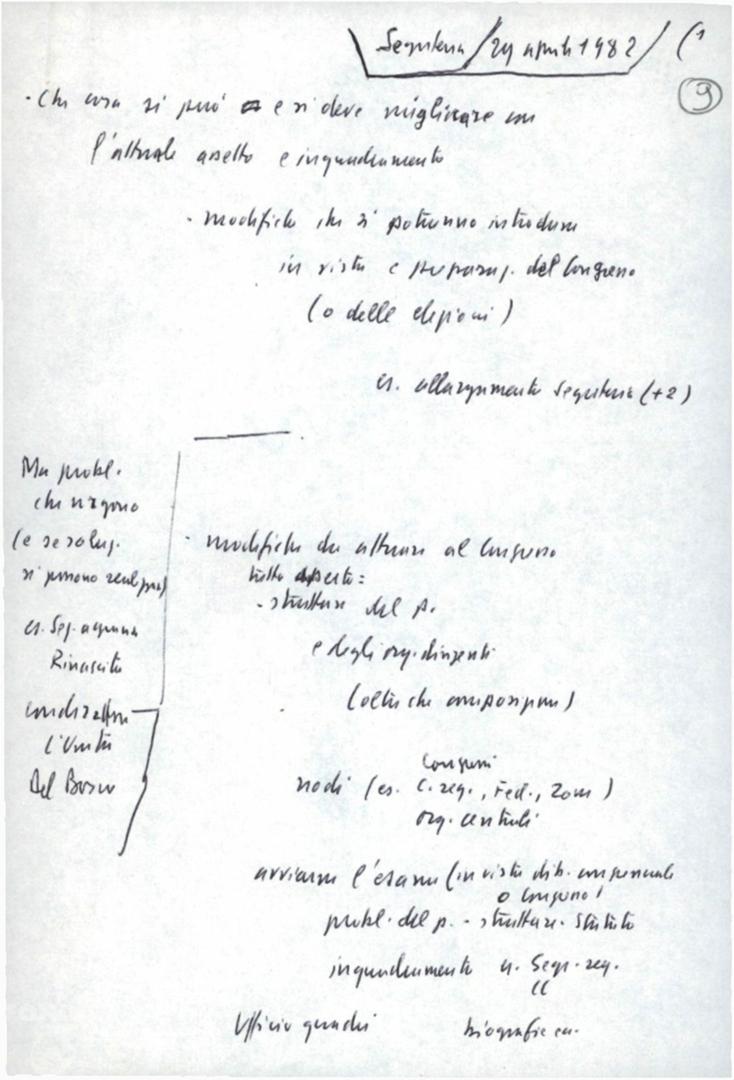 Segreteria / 29 aprile 1982 / (1
9
- Che cosa si può e si deve migliorare con
l'attuale assetto e inquadramento
- modifiche che si potranno introdurre
in vista e preparaz. del Congresso
(o delle elezioni)
es. allargamento Segreteria (+2)
Ma probl.
che urgono
(e se soluz.
si possono
es. Seg.
Rinascita
condirettore
l'Unità
Del Bosco
- modifiche da attuare al Congresso
tutto aperto:
- strutture del p.
e degli org. dirigenti
(oltre che composizione)
Congressi
nodi (es. C. reg., Fed., Zone)
org. centrali
avviare l'esame (in vista dib. congressuale
o Congresso)
probl. del p. - strutture - Statuto
inquadramento es. Segr. reg.
CC
Ufficio quadri biografie ecc.